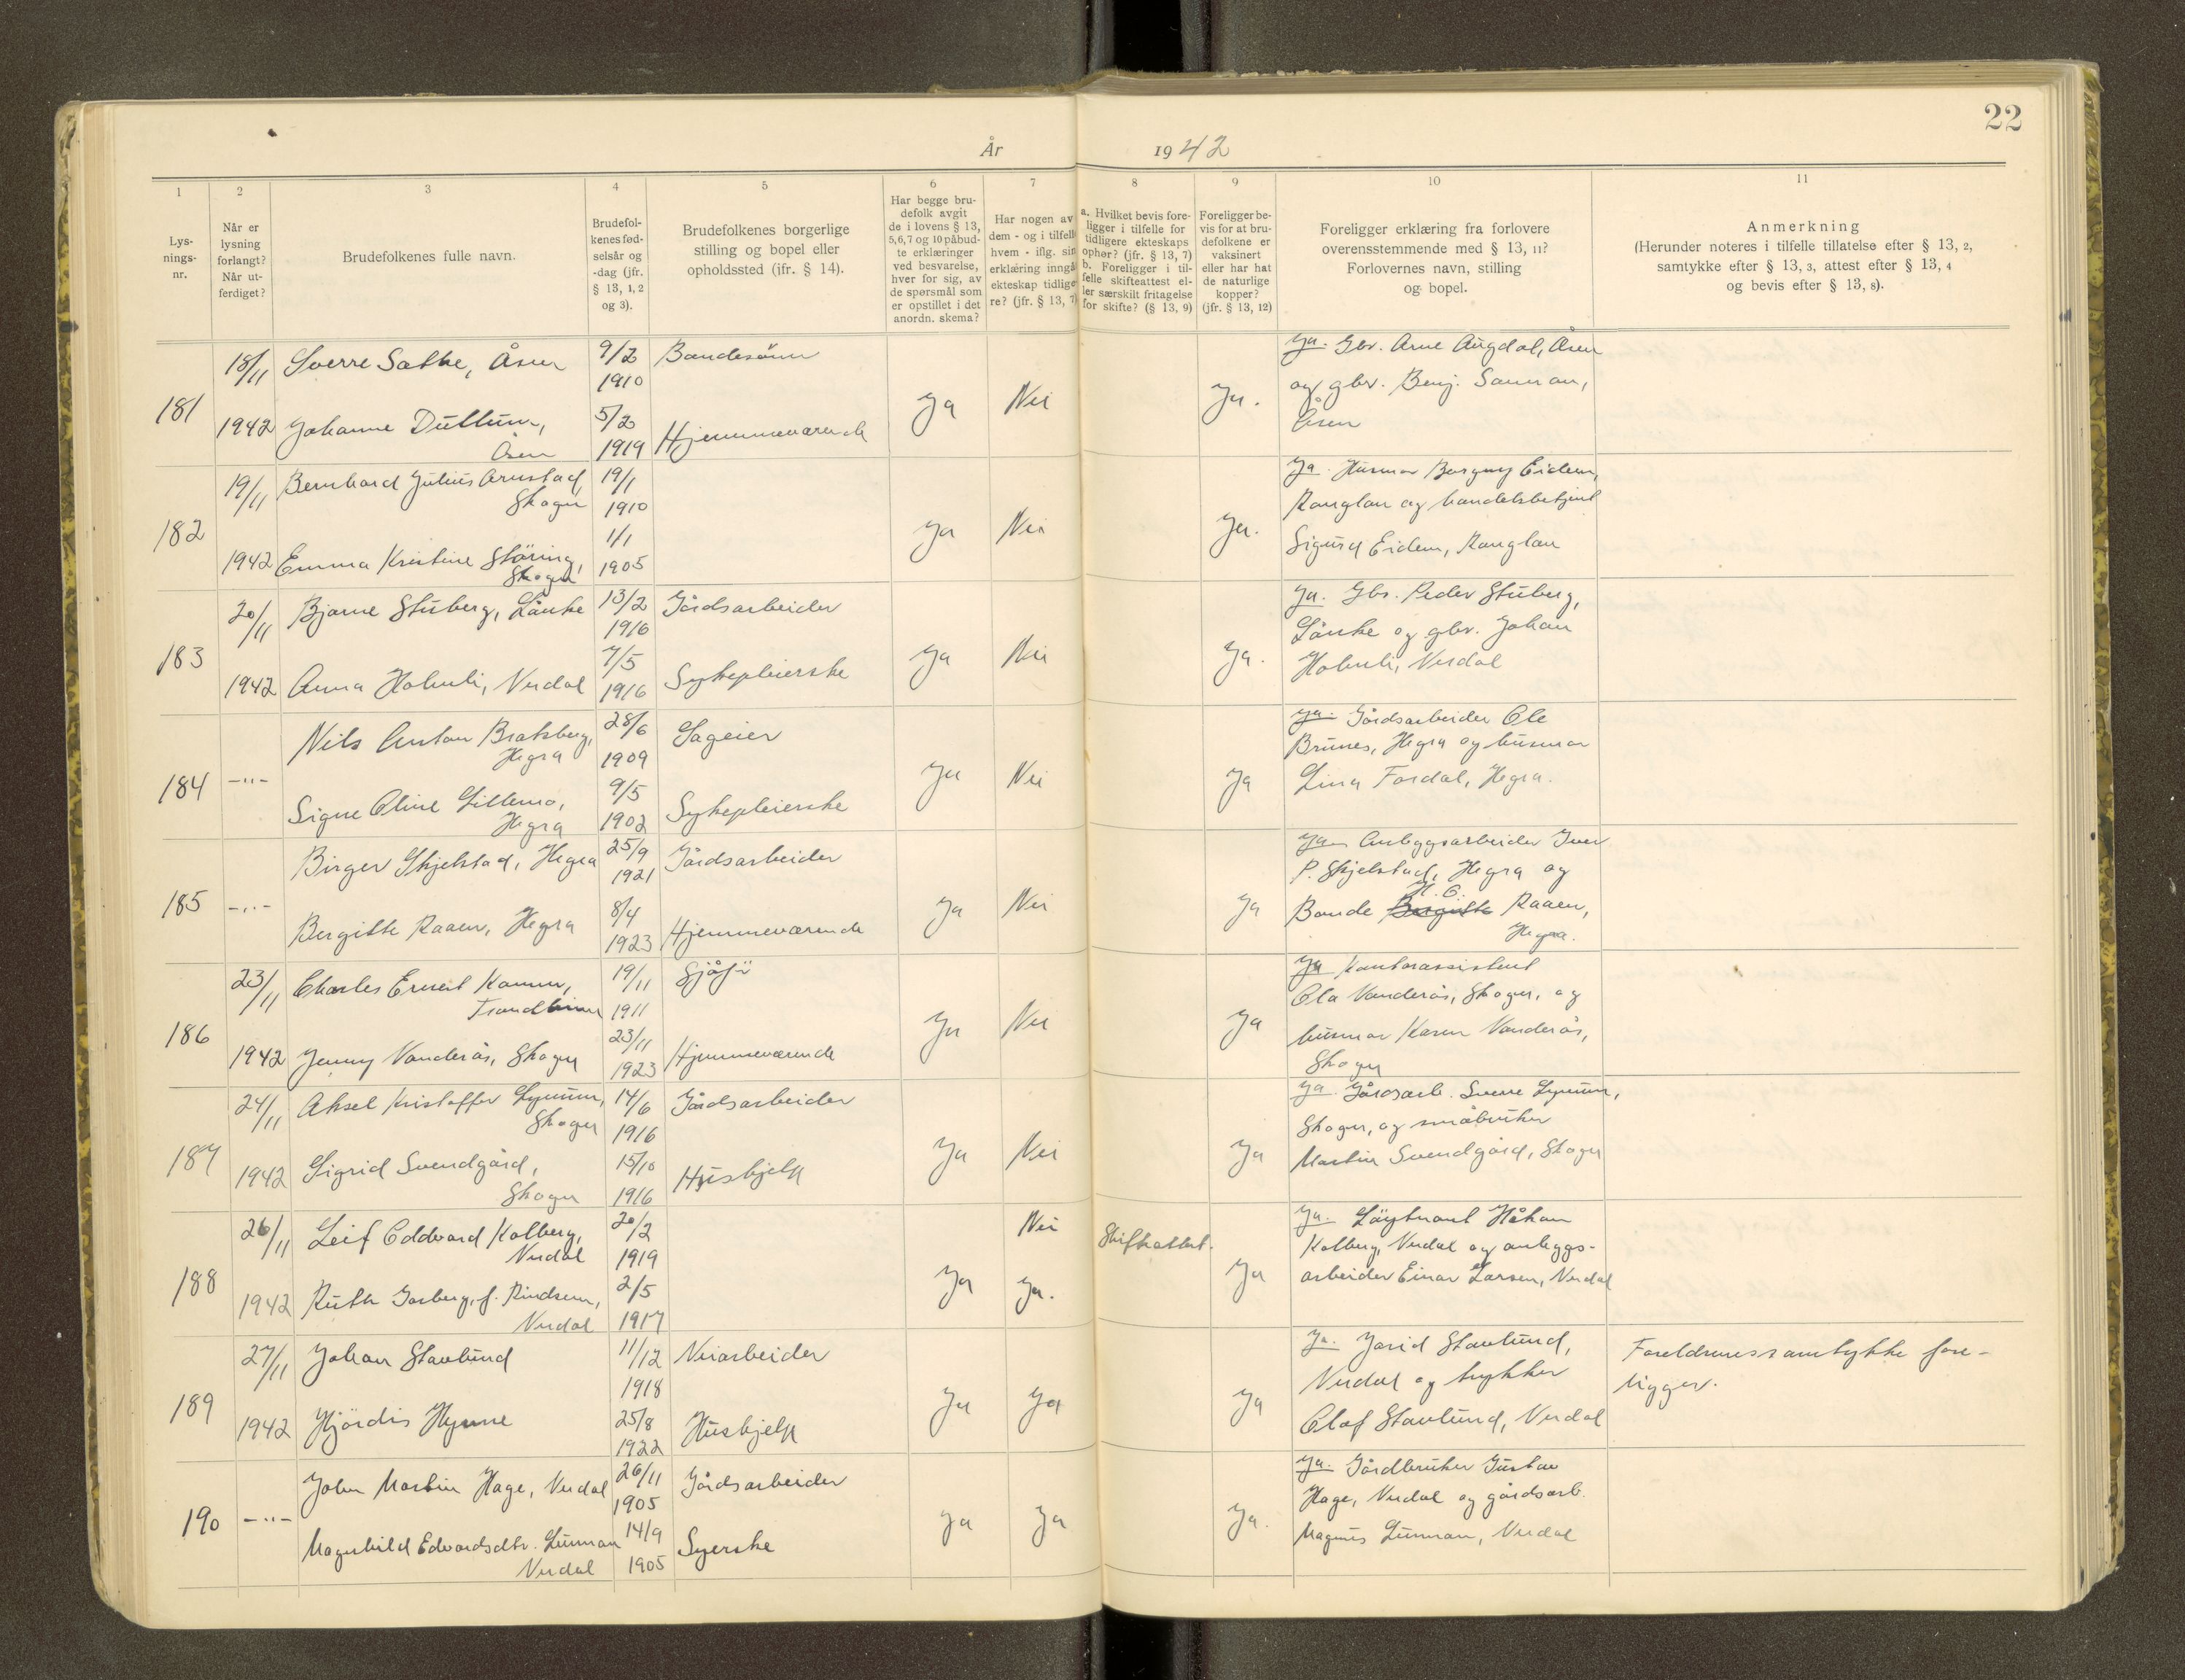 22
År 1942
1 2 3 4 5 6 7 8 9 10 11
Lys-
nings-
nr.
Når er
lysning
forlangt?
Når ut-
ferdiget?
Brudefolkenes fulle navn.
Brudefol-
kenes fød-
selsår og
-dag (jfr.
§ 13, 1, 2
og 3).
Brudefolkenes borgerlige
stilling og bopel eller
opholdssted (ifr. § 14).
Har begge bru-
defolk avgit
de i lovens § 13,
5,6,7 og 10 påbud-
te erklæringer
ved besvarelse,
hver for sig, av
de spørsmål som
er opstillet i det
anordn. skema?
Har nogen av
dem - og i tilfelle
hvem - iflg. sin
erklæring inngå
ekteskap tidlige
re? (jfr. § 13, 7)
a. Hvilket bevis fore-
ligger i tilfelle for
tidligere ekteskaps
ophør? (jfr. § 13, 7)
b. Foreligger i til-
felle skifteattest el-
ler særskilt fritagelse
for skifte? (§ 13, 9)
Foreligger be-
vis for at bru-
defolkene er
vaksinert
eller har hat
de naturlige
kopper?
(jfr. § 13, 12)
Foreligger erklæring fra forlovere
overensstemmende med § 13, 11?
Forlovernes navn, stilling
og bopel.
Anmerkning
(Herunder noteres i tilfelle tillatelse efter § 13, 2,
samtykke efter § 13, 3, attest efter § 13, 4
og bevis efter § 13, 8).
181
18/11
1942
Sverre Sæthe, Åsen
Johanne Dullum,
Åsen
9/2
1910
5/2
1919
Bondesönn
Hjemmeværende
Ja
Nei
Ja.
Ja. Gbr. Arne Augdal, Åsen
og gbr. Benj.
Åsen
182
19/11
1942
Bernhard Julius Arnstad,
Skogn
Emma Kristine Störing,
Skogn
19/1
1910
1/1
1905
Ja
Nei
Ja.
Ja. Husmor Borgny Eidem,
Ronglan og handelsbetjent
Sigurd Eidem, Ronglan
183
20/11
1942
Bjarne Stuberg, Lånke
Anna Holmli, Verdal
13/2
1916
7/5
1916
Gårdsarbeider
Sykepleierske
Ja
Nei
Ja.
Ja. Gbr. Peder Stuberg,
Lånke og gbr. Johan
Holmli, Verdal
184
-"-
Nils Anton Bratsberg,
Hegra
Signe Oline Lillemo,
Hegra
28/6
1909
9/5
1902
Sageier
Sykepleierske
Ja
Nei
Ja
Ja. Gårdsarbeider Ole
Brunes, Hegra og husmor
Lina Fordal, Hegra.
185
-"-
Birger Skjelstad, Hegra
Bergitte Raaen, Hegra
25/9
1921
8/4
1923
Gårdsarbeider
Hjemmeværende
Ja
Nei
Ja
Ja Anleggsarbeider Iver
P. Skjelstad, Hegra og
H. O.
Bonde Bergitte Raaen,
Hegra.
186
23/11
1942
Charles Ernest
Trondheim
Jenny Vanderås, Skogn
19/11
1911
23/11
1923
Sjåför
Hjemmeværende
Ja
Nei
Ja
Ja Kontorassistent
Ola Vanderås, Skogn, og
husmor Karen Vanderås,
Skogn
187
24/11
1942
Aksel Kristoffer Lynum,
Skogn
Sigrid Svendgård,
Skogn
14/6
1916
15/10
1916
Gårdsarbeider
Hushjelp
Ja
Nei
Ja
Ja. Gårdsarb. Sverre Lynum,
Skogn, og småbruker
Martin Svendgård, Skogn
188
26/11
1942
Leif Oddvard Kolberg,
Verdal
Ruth Garberg, f. Rindsem,
Verdal
20/2
1919
2/5
1917
Ja
Nei
Ja.
Skifteattest.
Ja
Ja. Löytnant Håkon
Kolberg, Verdal og anleggs-
arbeider Einar Larsen, Verdal
189
27/11
1942
Johan Stavlund
Hjördis Hynne
11/12
1918
25/8
1922
Veiarbeider
Hushjelp
Ja
Ja
Ja
Ja. Jorid Stavlund,
Verdal og trykker
Olaf Stavlund, Verdal
Foreldrenes samtykke fore-
ligger.
190
-"-
John Martin Hage, Verdal
Magnhild Edvardsdtr.
Verdal
26/11
1905
14/9
1905
Gårdsarbeider
Syerske
Ja
Ja
Ja.
Ja. Gårdbruker Gustav
Hage, Verdal og gårdsarb.
Magnus
Verdal